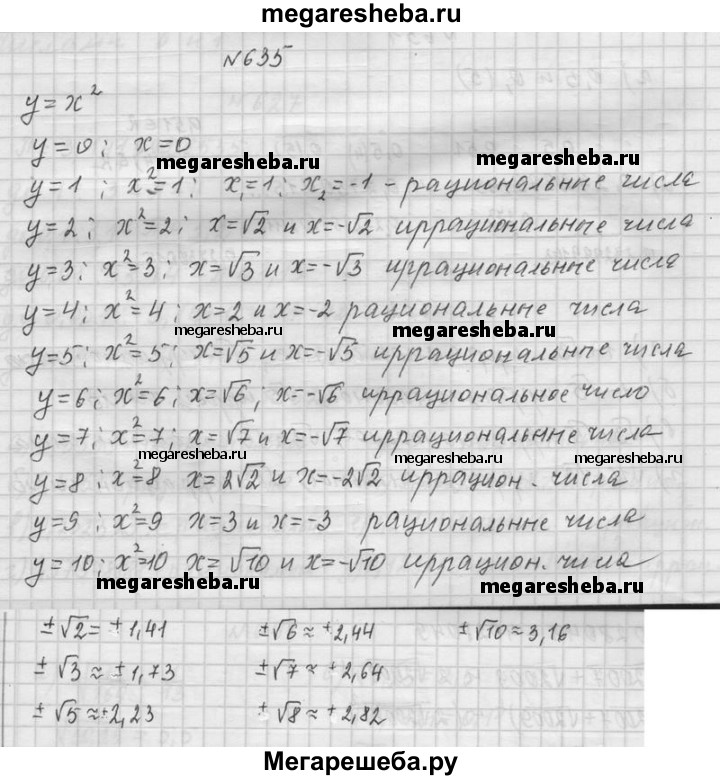 megaresheba.ru
№635
y = x²
y = 0; x = 0
megaresheba.ru megaresheba.ru
y = 1 ; x² = 1; x₁ = 1; x₂ = -1 - рациональные числа
y = 2; x² = 2; x = √2 и x = -√2 иррациональные числа
y = 3; x² = 3; x = √3 и x = -√3 иррациональные числа
y = 4; x² = 4; x = 2 и x = -2 рациональные числа
megaresheba.ru megaresheba.ru
y = 5; x² = 5; x = √5 и x = -√5 иррациональные числа
y = 6; x² = 6; x = √6; x = -√6 иррациональное число
y = 7; x² = 7; x = √7 и x = -√7 иррациональные числа
megaresheba.ru megaresheba.ru
y = 8; x² = 8 x = 2√2 и x = -2√2 иррацион. числа
y = 9; x² = 9 x = 3 и x = -3 рациональные числа
y = 10; x² = 10 x = √10 и x = -√10 иррацион. числа
megaresheba.ru megaresheba.ru
±√2 = ±1,41 ±√6 ≈ ±2,44 ±√10 ≈ 3,16
±√3 ≈ ±1,73 ±√7 ≈ ±2,64
±√5 ≈ ±2,23 ±√8 ≈ ±2,82
Мегарешеба.ру